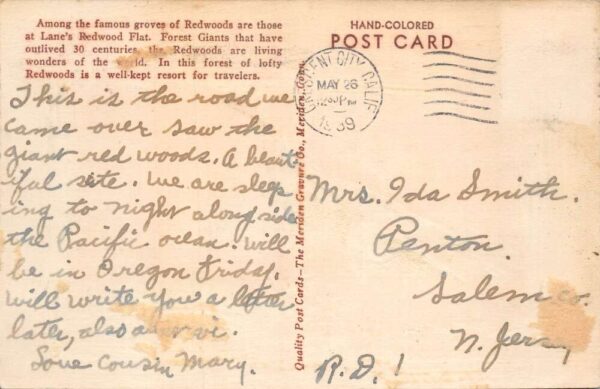 Among the famous groves of Redwoods are those
at Lane's Redwood Flat. Forest Giants that have
outlived 30 centuries, the Redwoods are living
wonders of the world. In this forest of lofty
Redwoods is a well-kept resort for travelers.
This is the road we
came over saw the
giant red woods. A beaut
iful site. We are sleep
ing to night along side
the Pacific ocean. Will
be in Oregon Friday.
Will write you a letter
later, also
Love Cousin Mary.
Quality Post Cards—The Meriden Gravure Co., Meriden, Conn.
HAND-COLORED
POST CARD
CRESCENT CITY, CALIF.
MAY 26
PM
1939
Mrs. Ida Smith.
Penton.
Salem co.
N. Jersy
R.D. 1